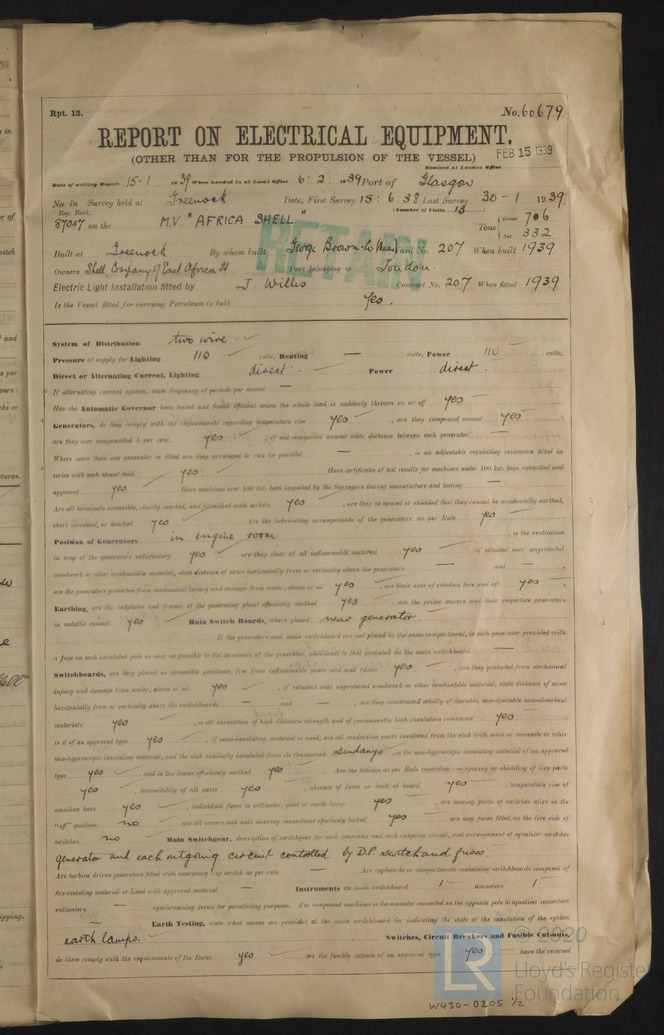 Rpt. 13. No. 60679
REPORT ON ELECTRICAL EQUIPMENT.
(OTHER THAN FOR THE PROPULSION OF THE VESSEL) FEB 15 1939
Received at London Office
Date of writing Report 15-1 1939 When handed in at Local Office 6.2. 1939 Port of Glasgow
No. in Survey held at Greenock Date, First Survey 15.6.38 Last Survey 30-1 1939
Reg. Book. (Number of Visits 13
87047 on the M.V. "AFRICA SHELL" Tons Gross 706
Net 332
Built at Greenock By whom built George Brown & Co Yard No. 207 When built 1939
Owners Shell Company of East Africa Ld Port belonging to London
Electric Light Installation fitted by J. Willis Contract No. 207 When fitted 1939
Is the Vessel fitted for carrying Petroleum in bulk Yes.
RETAIN
System of Distribution two wire
Pressure of supply for Lighting 110 volts, Heating — volts, Power 110 volts,
Direct or Alternating Current, Lighting direct Power direct
If alternating current system, state frequency of periods per second —
Has the Automatic Governor been tested and found efficient when the whole load is suddenly thrown on or off yes
Generators, do they comply with the requirements regarding temperature rise yes , are they compound wound yes
are they over compounded 5 per cent. yes , if not compound wound state distance between each generator —
Where more than one generator is fitted are they arranged to run in parallel — , is an adjustable regulating resistance fitted in
series with each shunt field yes Have certificates of test results for machines under 100 kw. been submitted and
approved yes Have machines over 100 kw. been inspected by the Surveyors during manufacture and testing —
Are all terminals accessible, clearly marked, and furnished with sockets yes , are they so spaced or shielded that they cannot be accidentally earthed,
short circuited, or touched yes Are the lubricating arrangements of the generators as per Rule yes
Position of Generators in engine room , is the ventilation
in way of the generators satisfactory yes are they clear of all inflammable material yes if situated near unprotected
woodwork or other combustible material, state distance of same horizontally from or vertically above the generators — and —
are the generators protected from mechanical injury and damage from water, steam or oil yes , are their axes of rotation fore and aft yes
Earthing, are the bedplates and frames of the generating plant efficiently earthed yes are the prime movers and their respective generators
in metallic contact yes Main Switch Boards, where placed near generator
If the generators and main switchboard are not placed in the same compartment, is each generator provided with
a fuse on each insulated pole as near as possible to the terminals of the generator, additional to that provided on the main switchboard —
Switchboards, are they placed in accessible positions, free from inflammable gases and acid fumes yes , are they protected from mechanical
injury and damage from water, steam or oil yes , if situated near unprotected woodwork or other combustible material, state distance of same
horizontally from or vertically above the switchboards — and — , are they constructed wholly of durable, non-ignitable non-absorbent
materials yes , is all insulation of high dielectric strength and of permanently high insulation resistance yes
is it of an approved type yes , if semi-insulating material is used, are all conducting parts insulated from the slab with mica or micanite or other
non-hygroscopic insulating material, and the slab similarly insulated from its framework sindanyo , is the non-hygroscopic insulating material of an approved
type yes , and is the frame effectively earthed yes Are the fittings as per Rule regarding:— spacing or shielding of live parts
yes , accessibility of all parts yes , absence of fuses on back of board yes , temperature rise of
omnibus bars yes , individual fuses to voltmeter, pilot or earth lamp yes , are moving parts of switches alive in the
"off" position no are all screws and nuts securing connections effectively locked yes are any fuses fitted on the live side of
switches no Main Switchgear, description of switchgear for each generator and each outgoing circuit, and arrangement of equaliser switches
generator and each outgoing circuit controlled by D.P. switch and fuses.
Are turbine driven generators fitted with emergency trip switch as per rule — Are cupboards or compartments containing switchboards composed of
fire-resisting material or lined with approved material — Instruments on main switchboard 1 ammeters 1
voltmeters — synchronising device for paralleling purposes. For compound machines is the ammeter connected on the opposite pole to equaliser connection
Earth Testing, state what means are provided at the main switchboard for indicating the state of the insulation of the system
earth lamps. Switches, Circuit Breakers and Fusible Cut-outs,
do these comply with the requirements of the Rules yes are the fusible cutouts of an approved type yes have the reversed
© 2020
LR Lloyd's Register
Foundation
W430-0205 ½